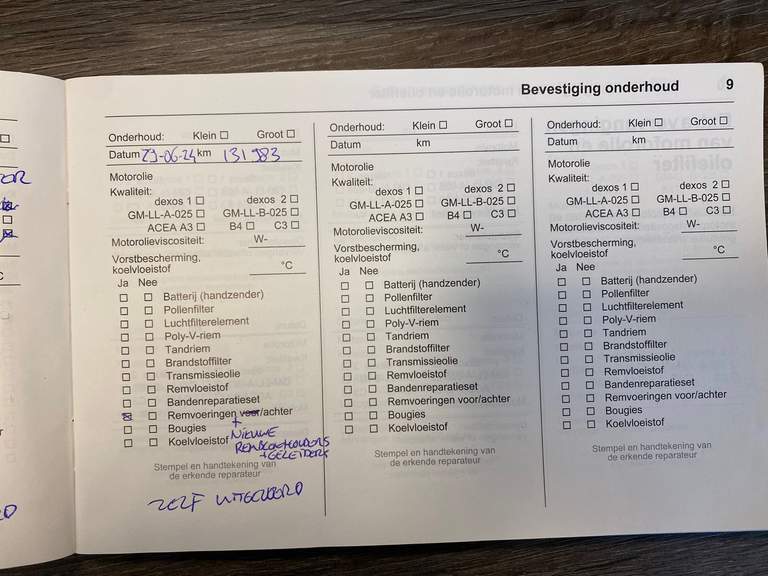 Bevestiging onderhoud 9
Onderhoud: Klein ☐ Groot ☐
Datum 29-06-24 km 131983
Motorolie
Kwaliteit:
dexos 1 ☐ dexos 2 ☐
GM-LL-A-025 ☐ GM-LL-B-025 ☐
ACEA A3 ☐ B4 ☐ C3 ☐
Motorolieviscositeit: W-
Vorstbescherming,
koelvloeistof °C
Ja Nee
☐ ☐ Batterij (handzender)
☐ ☐ Pollenfilter
☐ ☐ Luchtfilterelement
☐ ☐ Poly-V-riem
☐ ☐ Tandriem
☐ ☐ Brandstoffilter
☐ ☐ Transmissieolie
☐ ☐ Remvloeistof
☐ ☐ Bandenreparatieset
☒ ☐ Remvoeringen voor/achter
+
☐ ☐ Bougies
NIEUWE
☐ ☐ Koelvloeistof
REMBLOKHOUDERS
+ GELEIDERS
Stempel en handtekening van
de erkende reparateur
ZELF UITGEVOERD
Onderhoud: Klein ☐ Groot ☐
Datum km
Motorolie
Kwaliteit:
dexos 1 ☐ dexos 2 ☐
GM-LL-A-025 ☐ GM-LL-B-025 ☐
ACEA A3 ☐ B4 ☐ C3 ☐
Motorolieviscositeit: W-
Vorstbescherming,
koelvloeistof °C
Ja Nee
☐ ☐ Batterij (handzender)
☐ ☐ Pollenfilter
☐ ☐ Luchtfilterelement
☐ ☐ Poly-V-riem
☐ ☐ Tandriem
☐ ☐ Brandstoffilter
☐ ☐ Transmissieolie
☐ ☐ Remvloeistof
☐ ☐ Bandenreparatieset
☐ ☐ Remvoeringen voor/achter
☐ ☐ Bougies
☐ ☐ Koelvloeistof
Stempel en handtekening van
de erkende reparateur
Onderhoud: Klein ☐ Groot ☐
Datum km
Motorolie
Kwaliteit:
dexos 1 ☐ dexos 2 ☐
GM-LL-A-025 ☐ GM-LL-B-025 ☐
ACEA A3 ☐ B4 ☐ C3 ☐
Motorolieviscositeit: W-
Vorstbescherming,
koelvloeistof °C
Ja Nee
☐ ☐ Batterij (handzender)
☐ ☐ Pollenfilter
☐ ☐ Luchtfilterelement
☐ ☐ Poly-V-riem
☐ ☐ Tandriem
☐ ☐ Brandstoffilter
☐ ☐ Transmissieolie
☐ ☐ Remvloeistof
☐ ☐ Bandenreparatieset
☐ ☐ Remvoeringen voor/achter
☐ ☐ Bougies
☐ ☐ Koelvloeistof
Stempel en handtekening van
de erkende reparateur